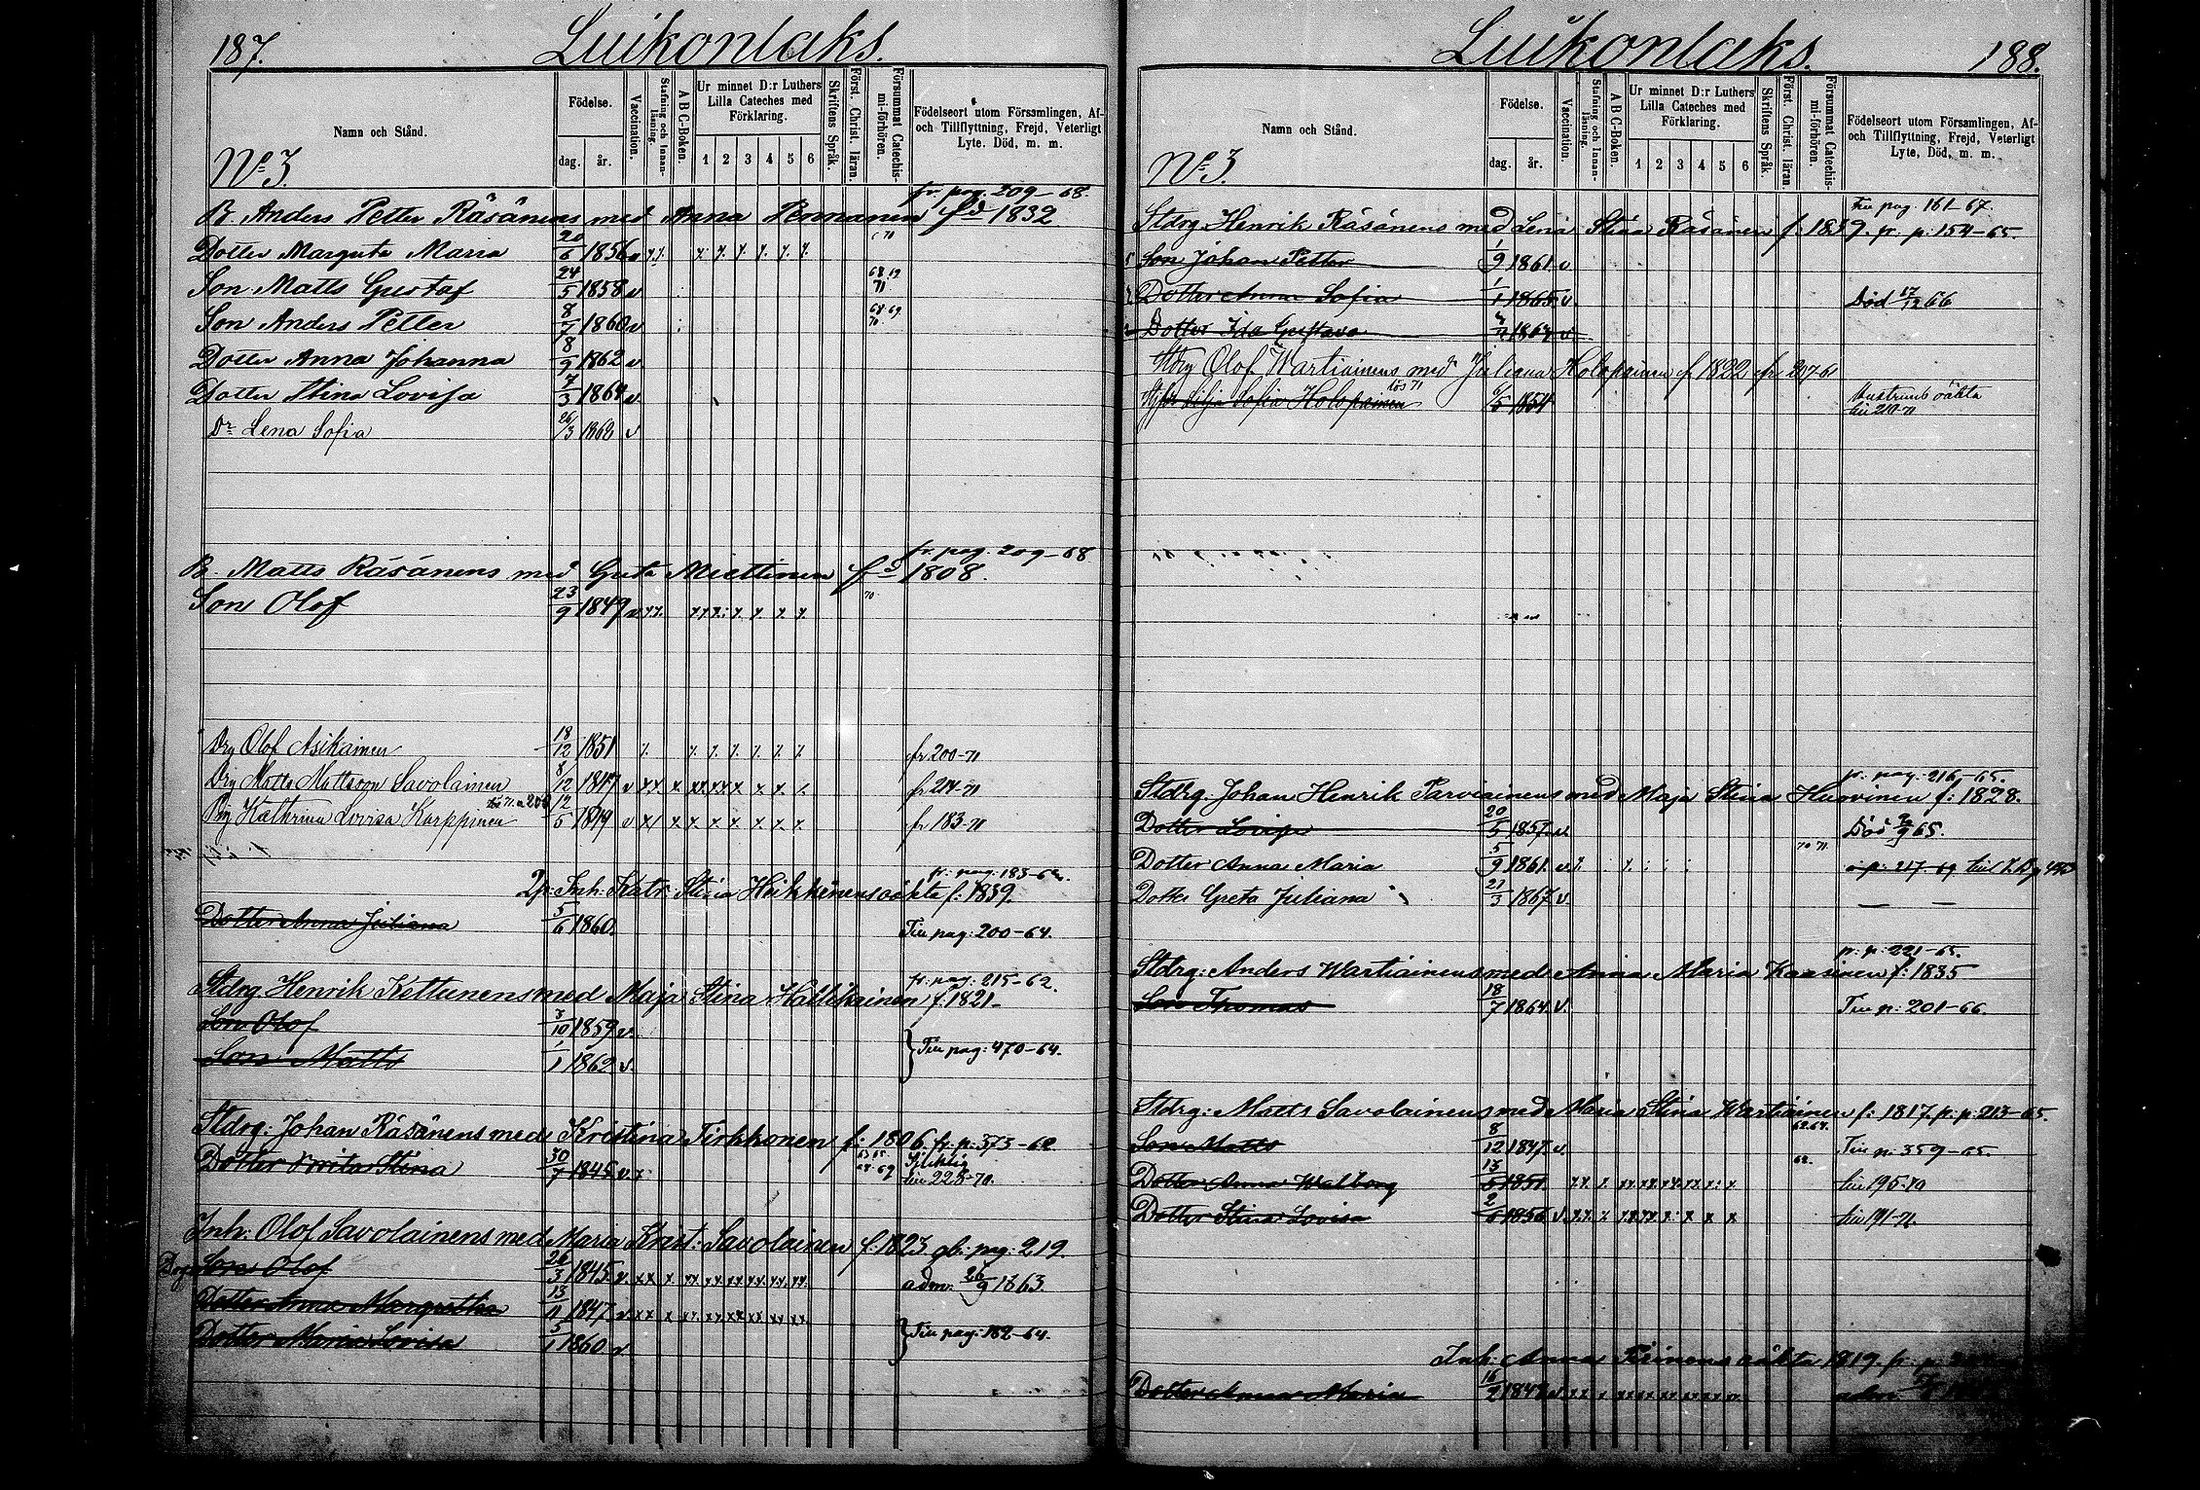 187.
Luikonlaks.
Namn och Stånd.
Födelse.
dag.
år.
Vaccination.
Stafning och Innan-läsning.
A B C-Boken.
Ur minnet D:r Luthers Lilla Cateches med Förklaring.
1 2 3 4 5 6
Skriftens Språk.
Först. Christ. läran.
Försummat Catechis-mi-förhören.
Födelseort utom Församlingen, Af- och Tillflyttning, Frejd, Veterligt Lyte. Död, m. m.
No 3.
fr. pag. 209-68.
B. Anders Petter Räsänens med Anna Pennanen fd 1832.
Dotter Margeta Maria 20/6 1856 v
Son Matts Gustaf 24/5 1858 v 68 69 71
Son Anders Petter 8/7 1860 v 68 69 70
Dotter Anna Johanna 18/9 1862 v
Dotter Stina Lovisa 7/3 1864 v
Dr Lena Sofia 26/3 1868 v
fr. pag. 209-68
B. Matts Räsänens med Greta Miettinen fd 1808.
Son Olof 23/9 1849 v 70
Drg Olof Asikainen 18/12 1851 fr 200-71
Drg Matts Mattsson Savolainen 8/12 1847 v fr 214-71
Pig Kathrina Lovisa Karppinen 12/5 1849 v fr 183-71
fr. pag. 183-62.
Inh: Katr: Stina Heikkinens oäkta f: 1839.
Dotter Anna Juliana 5/6 1860. Till pag: 200-64.
fr. pag: 215-62.
Stdrg. Henrik Kettunens med Maja Stina Hallikainen f. 1821-
Son Olof 3/10 1859 v.
Son Matts 1/1 1862 v. } Till pag: 470-64.
Stdrg: Johan Räsänens med Kristina Tirkkonen f: 1806. fr: p: 373-62
Dotter Brita Stina 30/7 1845 v Sjuklig till 228-70.
Inh: Olof Savolainens med Maria Krist: Savolainen f. 1823 gb: pag: 219.
Son Olof 26/3 1845 v. adm. 26/9 1863.
Dotter Anna Margretha 13/11 1847 v
Dotter Maria Lovisa 5/1 1860 v } Till pag: 182-64.
Luikonlaks.
188.
Namn och Stånd.
Födelse.
dag.
år.
Vaccination.
Stafning och Innan-läsning.
A B C-Boken.
Ur minnet D:r Luthers Lilla Cateches med Förklaring.
1 2 3 4 5 6
Skriftens Språk.
Först. Christ. läran
Försummat Catechis-mi-förhören.
Födelseort utom Församlingen, Af- och Tillflyttning, Frejd, Veterligt Lyte, Död, m. m.
No 3.
Till pag. 161-67.
Stdrg. Henrik Räsänens med Lena Stina Räsänen f: 1839. fr. p: 154-65.
Son Johan Petter 1/9 1861 v
Dotter Anna Sofia 1/1 1865 v. Död 17/12 66
Dotter Ida Gustava 1867 v
Stdrg Olof Wartiainens med Juliana Holopainen f 1822 fr 207-61
Silja Sofia Holopainen 6/5 1854 till 210-71
fr. pag: 216-65.
Stdrg. Johan Henrik Parviainens med Maja Stina Huovinen f: 1828.
Dotter Lovisa 20/5 1857 v. Död 9 65.
Dotter Anna Maria 5/9 1861. v. 70 71.
Dotter Greta Juliana 21/3 1867 v. — —
fr: p: 221-65.
Stdrg: Anders Wartiainens med Anna Maria Kaasinen f: 1835
Son Thomas 18/7 1864. v. Till p: 201-66.
Stdrg: Matts Savolainens med Maria Stina Wartiainen f: 1817. fr: p: 213-65.
Son Matts 8/12 1847. v. 62.64. Till p: 359-65.
Dotter Anna Walborg 13/5 1851. 62. till 195-70
Dotter Stina Lovisa 2/6 1856 v. till 191-71.
Inh: Anna oäkta 1819. fr. p.
Dotter Anna Maria 16/2 1848 v adm